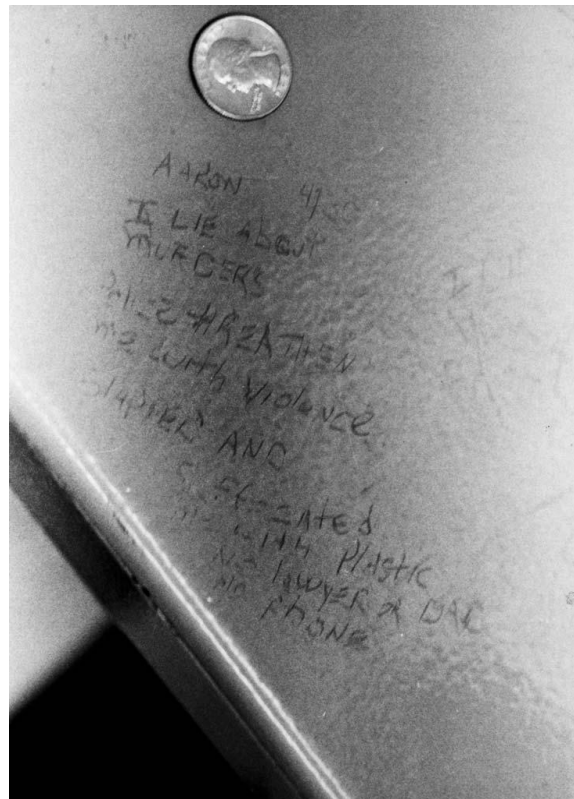 AARON 4/30
I LIE AbOUT
MURDERS
POLICE THREATHEN
me with Violence
Slapped AND
Suffocated
me with Plastic
No lawyer or DAD
No Phone
I LIE